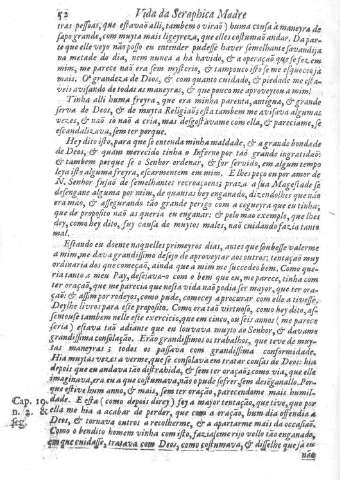 52 Vida da Seraphica Madre
tras pessoas, que estavaõ alli, tambem o viraõ) huma cousa à maneyra de
sapo grande, com muyta mais ligeyreza, que elles costumaõ andar. Da par-
te que elle veyo não posso eu entender pudesse haver semelhante savandija
na metade do dia, nem nunca a ha havido, & a operação que se fez em
mim, me parece não era sem mysterio, & tampouco isto se me esqueceo já
mais. O grandeza de Deos, & com quanto cuidado, & piedade me esta-
veis avisando de todas as maneyras, & que pouco me aproveytou a mim!
Tinha alli huma freyra, que era minha parenta, antigua, & grande
serva de Deos, & de muyta Religiaõ; esta tambem me avisava algumas
vezes, & naõ só não a cria, mas desgostavame com ella, & pareciame, se
escandalizava, sem ter porque.
Hey dito isto, para que se entenda minha maldade, & a grande bondade
de Deos, & quam merecido tinha o Inferno por taõ grande ingratidaõ
& tambem porque se o Senhor ordenar, & for servido, em algum tempo
leya isto alguma freyra, escarmentem em mim. E lhes peço eu por amor de
N. Senhor fujaõ de semelhantes recreaçoens; praza a sua Magestade se
desengane alguma por mim, de quantas hey enganado, dizendolhes que não
era mào, & assegurando tão grande perigo com a cegueyra que eu tinha;
que de proposito não as queria eu enganar: & pelo mao exemplo, que lhes
dey, como hey dito, fuy causa de muytos males, não cuidando fazia tanto
mal.
Estando eu doente naquelles primeyros dias, antes que soubesse valerme
a mim, me dava grandissimo desejo de aproveytar aos outros: tentação muy
ordinaria dos que começaõ, ainda que a mim me succedeo bem. Como que-
ria tanto a meu Pay, desejava-o com o bem que eu, me parece, tinha com
ter oraçaõ, que me parecia que nesta vida não podia ser mayor, que ter ora-
çaõ; & assim por rodeyos, como pude, comecey a procurar com elle a tivesse.
Deylhe livros para este proposito. Como era taõ virtuoso, como hey dito, as-
sentouse tambem nelle este exercicio, que em cinco, ou seis annos (me parece
seria) estava taõ adiante que eu louvava muyto ao Senhor, & davame
grandissima consolação. Eraõ grandissimos os trabalhos, que teve de muy-
tas maneyras; todos os passava com grandissima conformidade.
Hia muytas vezes a verme, que se consolava em tratar cousas de Deos: hia
depois que eu andava taõ distrahida, & sem ter oraçaõ; como via, que elle
imaginava, era eu a que costumava, não o pude sofrer sem desenganallo. Por-
que estive hum anno, & mais, sem ter oração, parecendome mais humil-
dade. E esta (como depois direy) foy a mayor tentação, que tive, que por
ella me hia a acabar de perder, que com a oração, hum dia offendia a
Deos, & tornava outros a recolherme, & a apartarme mais da occasiaõ.
Como o bendito homem vinha com isto, faziaseme rijo vello taõ enganado,
em que cuidasse, tratava com Deos, como costumava, & disselhe que já eu
não
Cap. 19.
n. 2. &
seq.